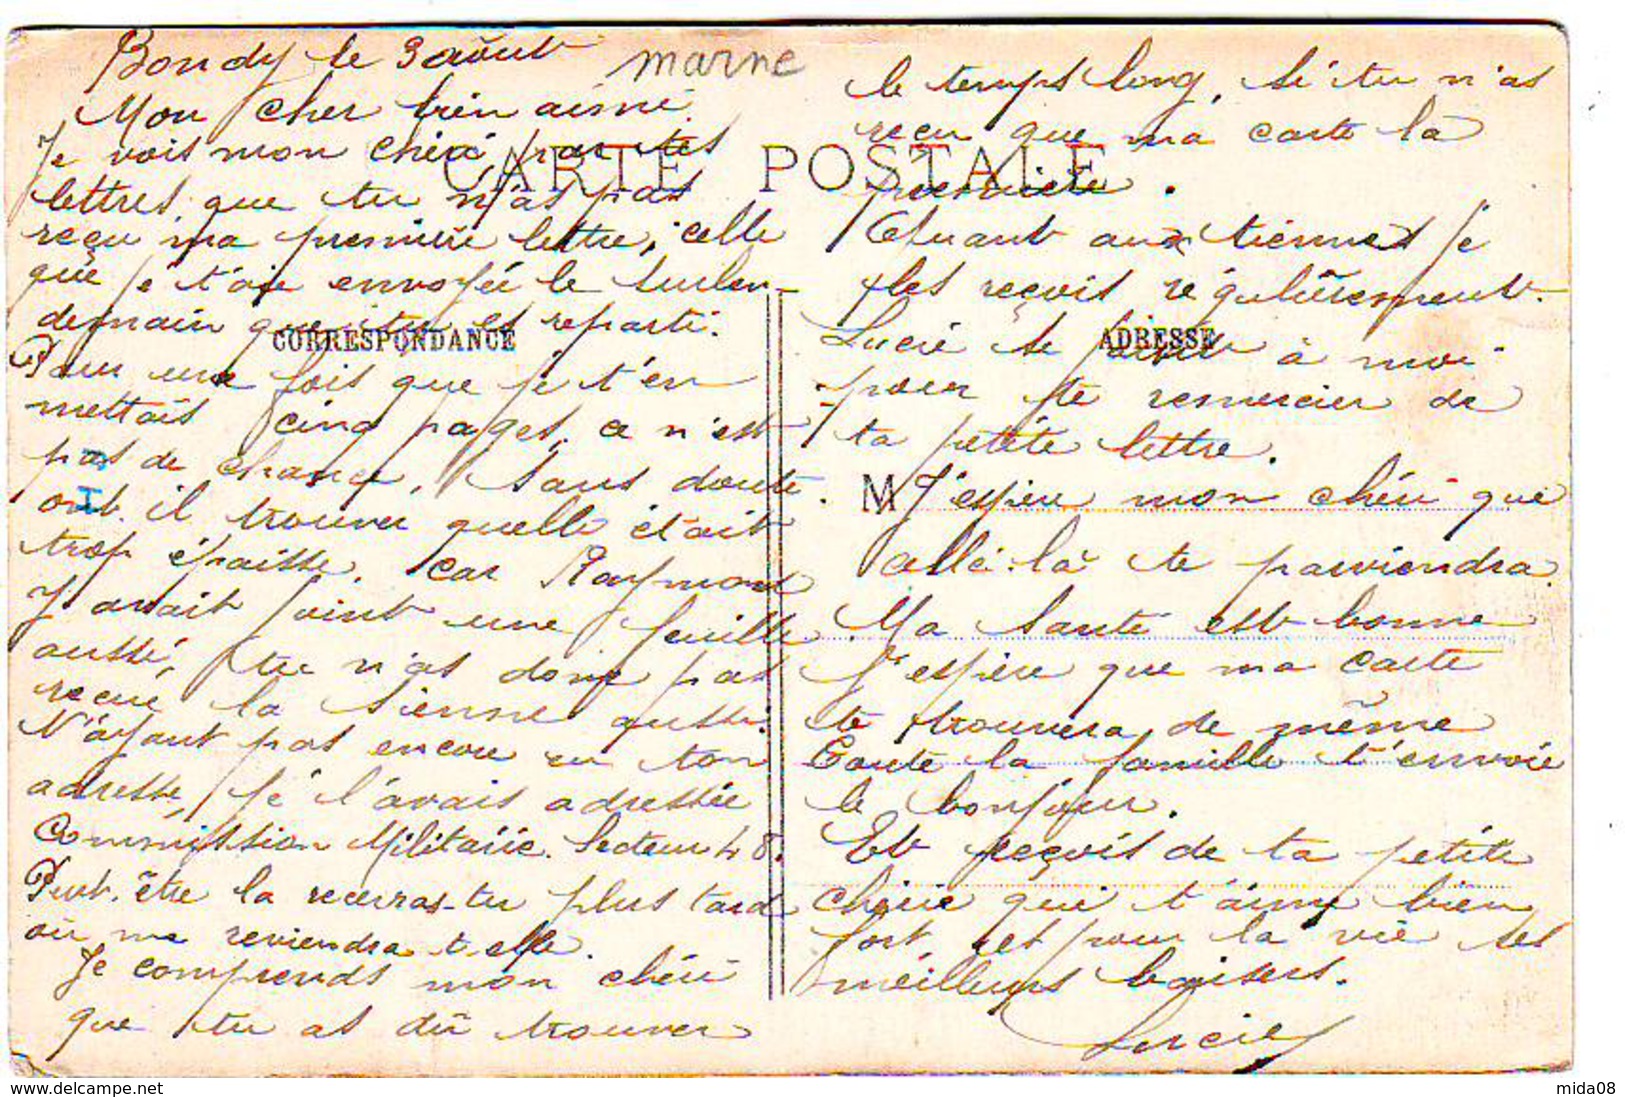 Bondy le 3 août
marne
Mon cher bien aimé.
Je vois mon chéri, par tes
lettres, que tu n'as pas
reçu ma première lettre, celle
que je t'aie envoyée le surlen-
demain que tu es reparti.
Pour une fois que je t'en
mettais cinq pages, ce n'est
pas de chance. Sans doute
ont-il trouver quelle était
trop épaisse, car Raymond
y avait joint une feuille
aussi, tu n'as donc pas
reçue la sienne aussi.
N'ayant pas encore eu ton
adresse, je l'avais adressée
Commission Militaire. Secteur 48.
Peut-être la recerras-tu plus tard
où me reviendra t-elle.
Je comprends mon chéri
que tu as dû trouver
CARTE POSTALE
CORRESPONDANCE
ADRESSE
M
le temps long, si tu n'as
reçu que ma carte la
première.
Quant aux tiennes je
les reçois régulièrement.
Lucie se joint à moi
pour te remercier de
ta petite lettre.
J'espère mon chéri que
celle-là te parviendra.
Ma santé est bonne
J'espère que ma carte
te trouvera de même
Toute la famille t'envoie
le bonjour.
Et reçois de ta petite
chérie qui t'aime bien
fort, et pour la vie ses
meilleurs baisers.
mida08